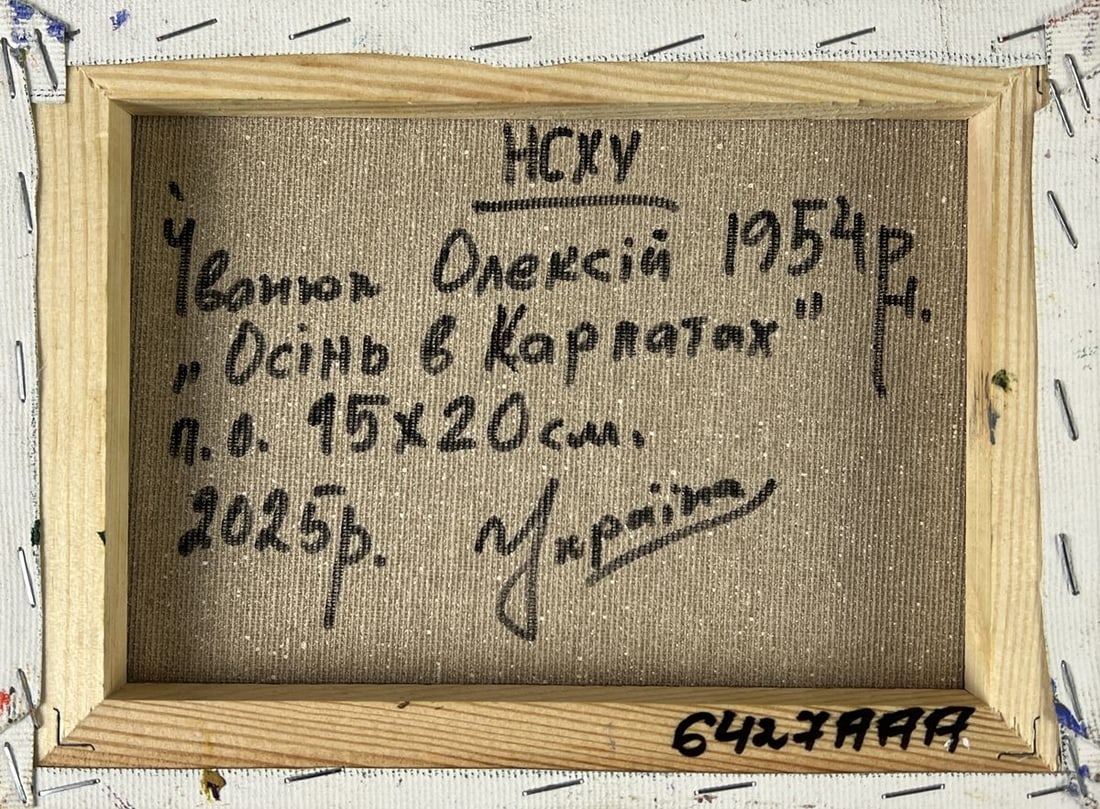 НСХУ
Іванюк Олексій 1954 р.н.
„Осінь в Карпатах"
п.о. 15х20 см.
2025р. Україна
6427AAA